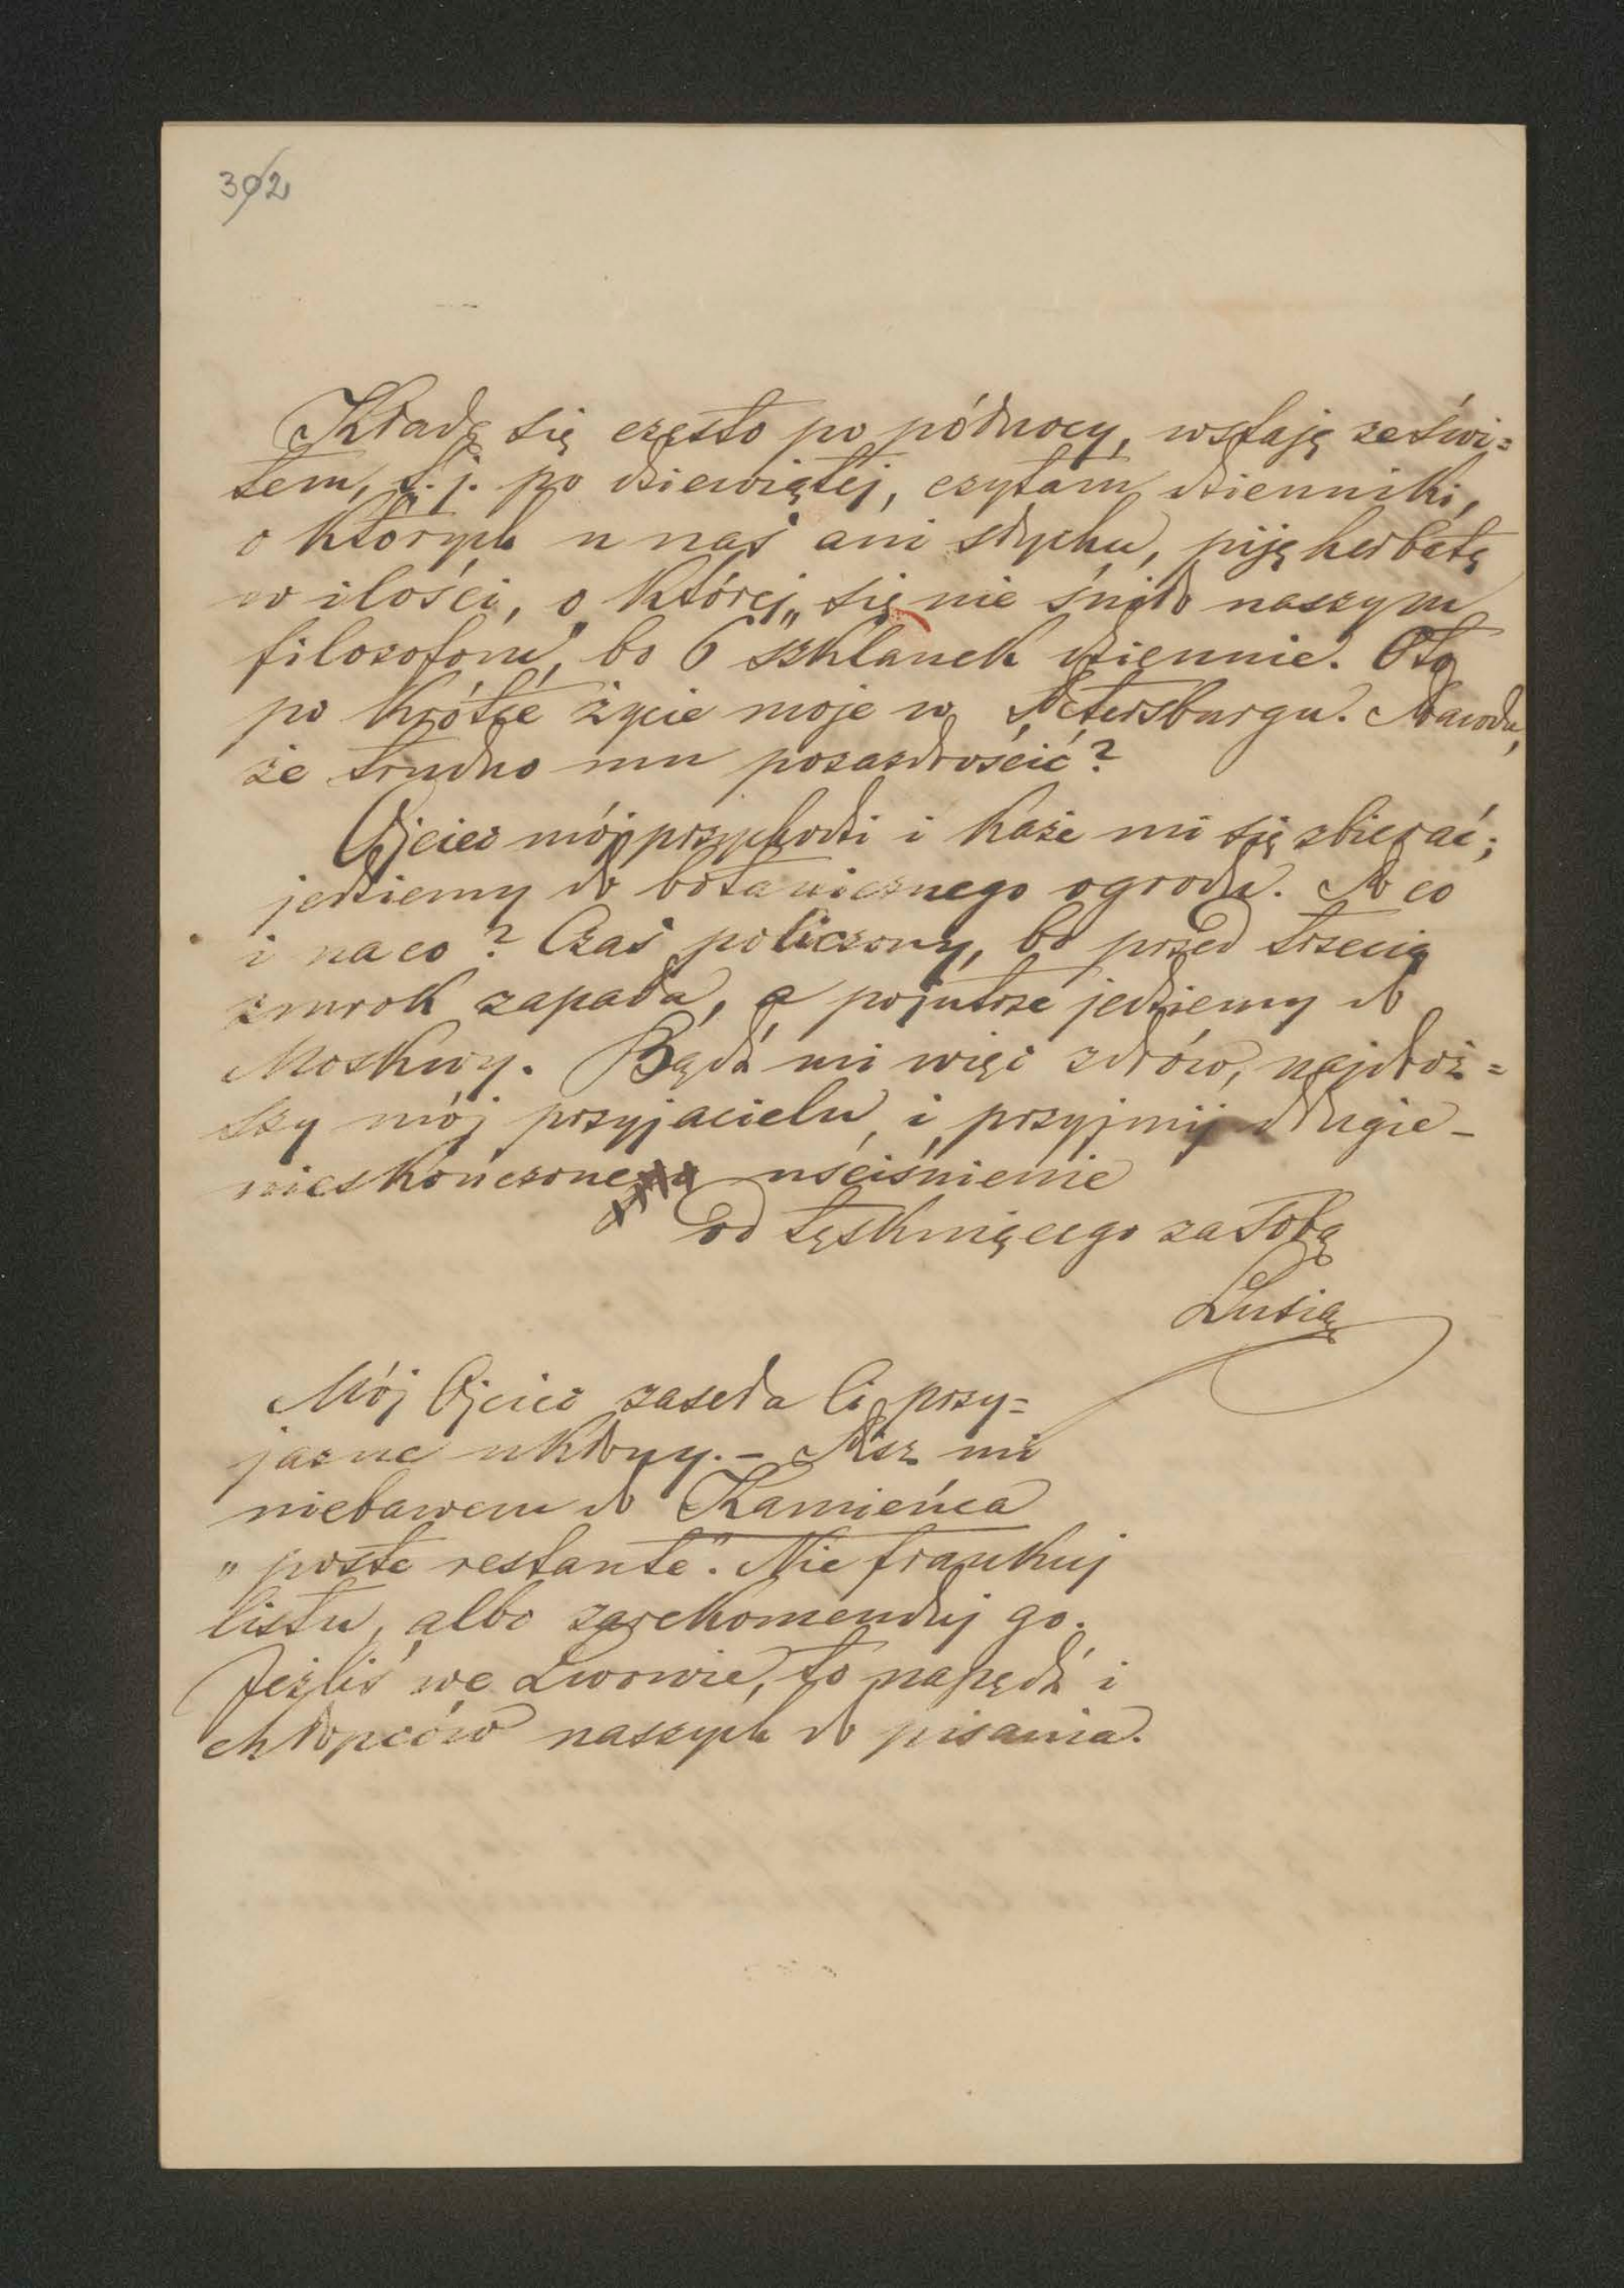 302
Kładę się często po północy, wstaję ze świ=
tem, t. j. po dziewiątej, czytam dzienniki,
o których u nas ani słychu, piję herbatę
w ilości, o której „się nie śniło naszym
filozofom", bo 6 szklanek dziennie. Oto
po krótce życie moje w Petersburgu. Prawda,
że trudno mu pozazdrościć?
Ojciec mój przychodzi i każe mi się zbierać;
jedziemy do botanicznego ogrodu. Po co
i na co? Czas policzony, bo przed trzecią
zmrok zapada, a pojutrze jedziemy do
Moskwy. Bądź mi więc zdrów, najdroż=
szy mój przyjacielu i przyjmij długie –
nieskończone uściśnienie
od tęskniącego za Tobą
Lusia
Mój Ojciec zaseła Ci przy=
jazne ukłony. – Pisz mi
niebawem do Kamieńca
„poste restante". Nie frankuj
listu, albo zarekomenduj go.
Jeżliś we Lwowie, to napędź i
chłopców naszych do pisania.